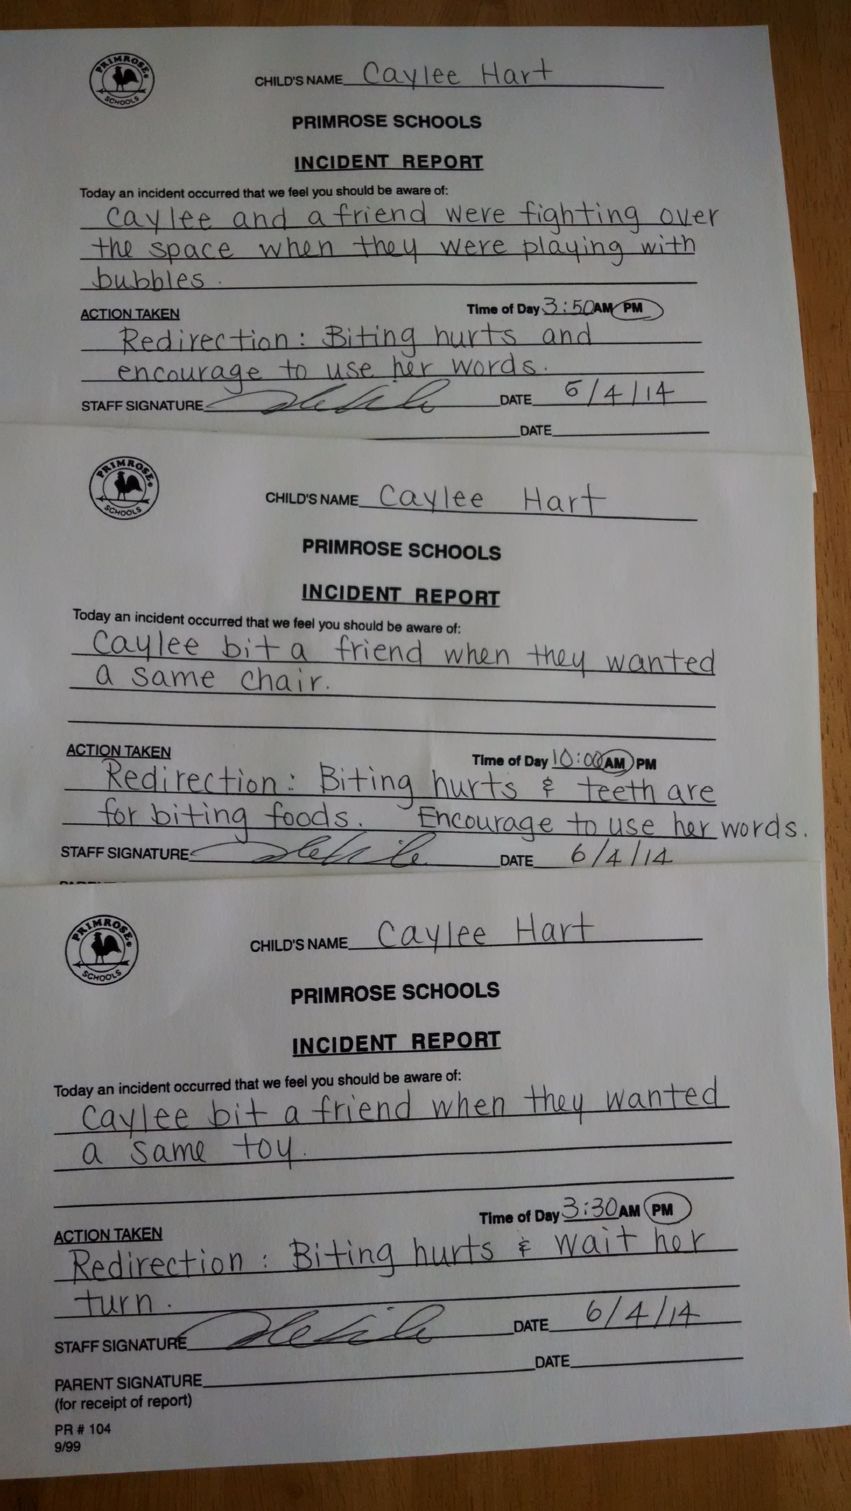 PRIMROSE
SCHOOLS
CHILD'S NAME Caylee Hart
PRIMROSE SCHOOLS
INCIDENT REPORT
Today an incident occurred that we feel you should be aware of:
Caylee and a friend were fighting over
the space when they were playing with
bubbles.
ACTION TAKEN Time of Day 3:50 AM PM
Redirection: Biting hurts and
encourage to use her words.
STAFF SIGNATURE DATE 6/4/14
DATE
PRIMROSE
SCHOOLS
CHILD'S NAME Caylee Hart
PRIMROSE SCHOOLS
INCIDENT REPORT
Today an incident occurred that we feel you should be aware of:
Caylee bit a friend when they wanted
a same chair.
ACTION TAKEN Time of Day 10:00 AM PM
Redirection: Biting hurts & teeth are
for biting foods. Encourage to use her words.
STAFF SIGNATURE DATE 6/4/14
PRIMROSE
SCHOOLS
CHILD'S NAME Caylee Hart
PRIMROSE SCHOOLS
INCIDENT REPORT
Today an incident occurred that we feel you should be aware of:
Caylee bit a friend when they wanted
a same toy.
ACTION TAKEN Time of Day 3:30 AM PM
Redirection: Biting hurts & wait her
turn.
STAFF SIGNATURE DATE 6/4/14
PARENT SIGNATURE DATE
(for receipt of report)
PR # 104
9/99